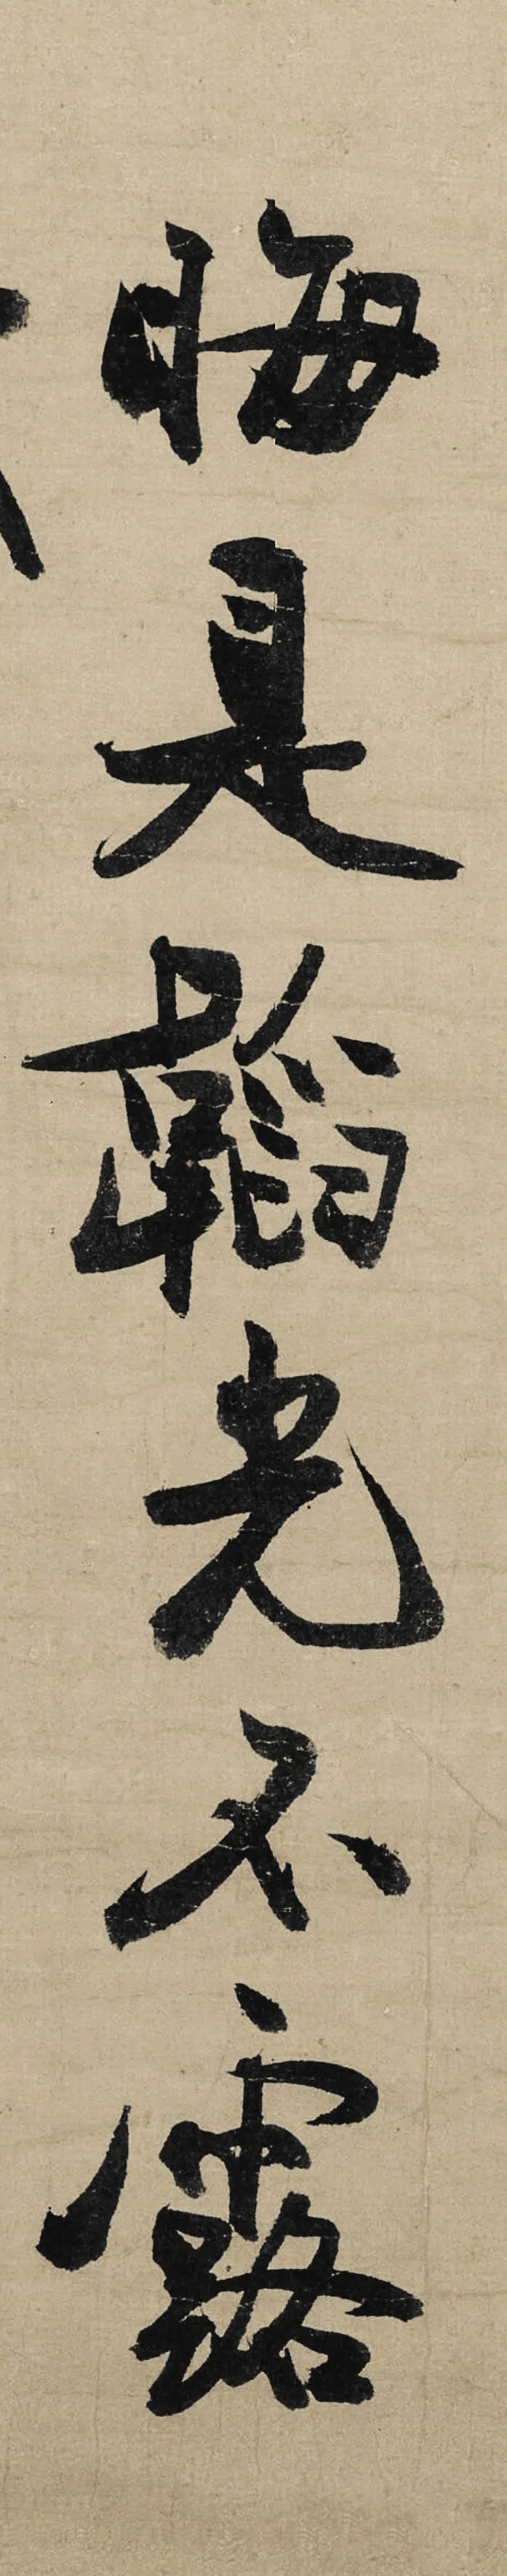 晦是韜光不露